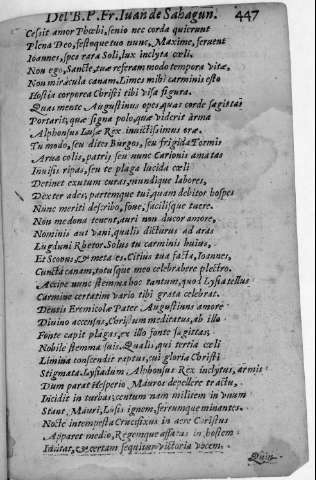 Del B. P. Fr. Iuan de Sahagun. 447
Cessit amor Phœbi, senio nec corda quierunt
Plena Deo, festoque tuo nunc, Maxime, feruent
Ioannes, spes rara Soli, lux inclyta cœli.
Non ego, Sancte, tuæ referam modo tempora vitæ,
Non miracula canam, Limes mihi carminis esto
Hostia corporea Christi tibi visa figura.
Quas mente Augustinus opes, quas corde sagittas
Portarit, quæ signa polo, quæ viderit arma
Alphonsus Lusæ Rex inuictissimus oræ.
Tu modo, seu dites Burgos, seu frigida Tormis
Arua colis, patrij seu nunc Carionis amatas
Inuisis ripas, seu te plaga lucida cœli
Detinet exutum curas, mundique labores,
Dexter ades, partemque tui, quam debitor hospes
Nunc meriti describo, foue, facilisque tuere.
Non me dona tenent, auri non ducor amore,
Nominis aut vani, qualis dicturus ad aras
Lugduni Rhetor. Solus tu carminis huius,
Et Scopus, & meta es. Citius tua facta, Ioannes,
Cuncta canam, totusque meo celebrabere plectro.
Accipe nunc stemma hoc tantum, quod Lysia tellus
Carmine certatim vario tibi grata celebrat.
Dentis Eremicolæ Pater Augustinus amore
Diuino accensus, Christum meditatus, ab illo
Fonte capit plagas, ex illo fonte sagittas,
Nobile stemma suis. Qualis, qui tertia cœli
Limina conscendit raptus, cui gloria Christi
Stigmata. Lysiadum Alphonsus Rex inclytus, armis
Dum parat Hesperio Mauros depellere tractu,
Incidit in turbas, centum nam millitem in vnum
Stant, Mauri, Lusis ignem, ferrumque minantes.
Nocte intempesta Crucifixus in aere Christus
Apparet medio, Regemque affatus in hostem
Incitat, & certam sequitur victoria vocem.
Quin-